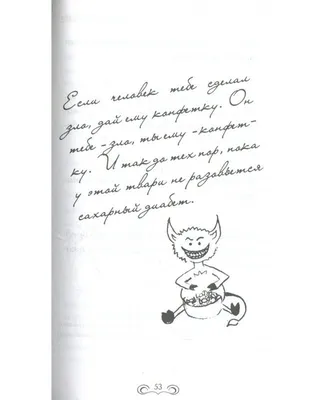 Если человек тебе сделал
зло, дай ему конфетку. Он
тебе - зло, ты ему - конфет-
ку. И так до тех пор, пока
у этой твари не разовьется
сахарный диабет.
53